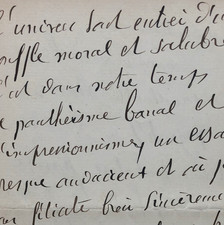 l'univers sont entrée d'u
souffle moral et salubre
c'est dans notre temps
le panthéisme banal et
l'impressionnisme, un essa
presque audacieux et où p
un filiale bien sincèrem